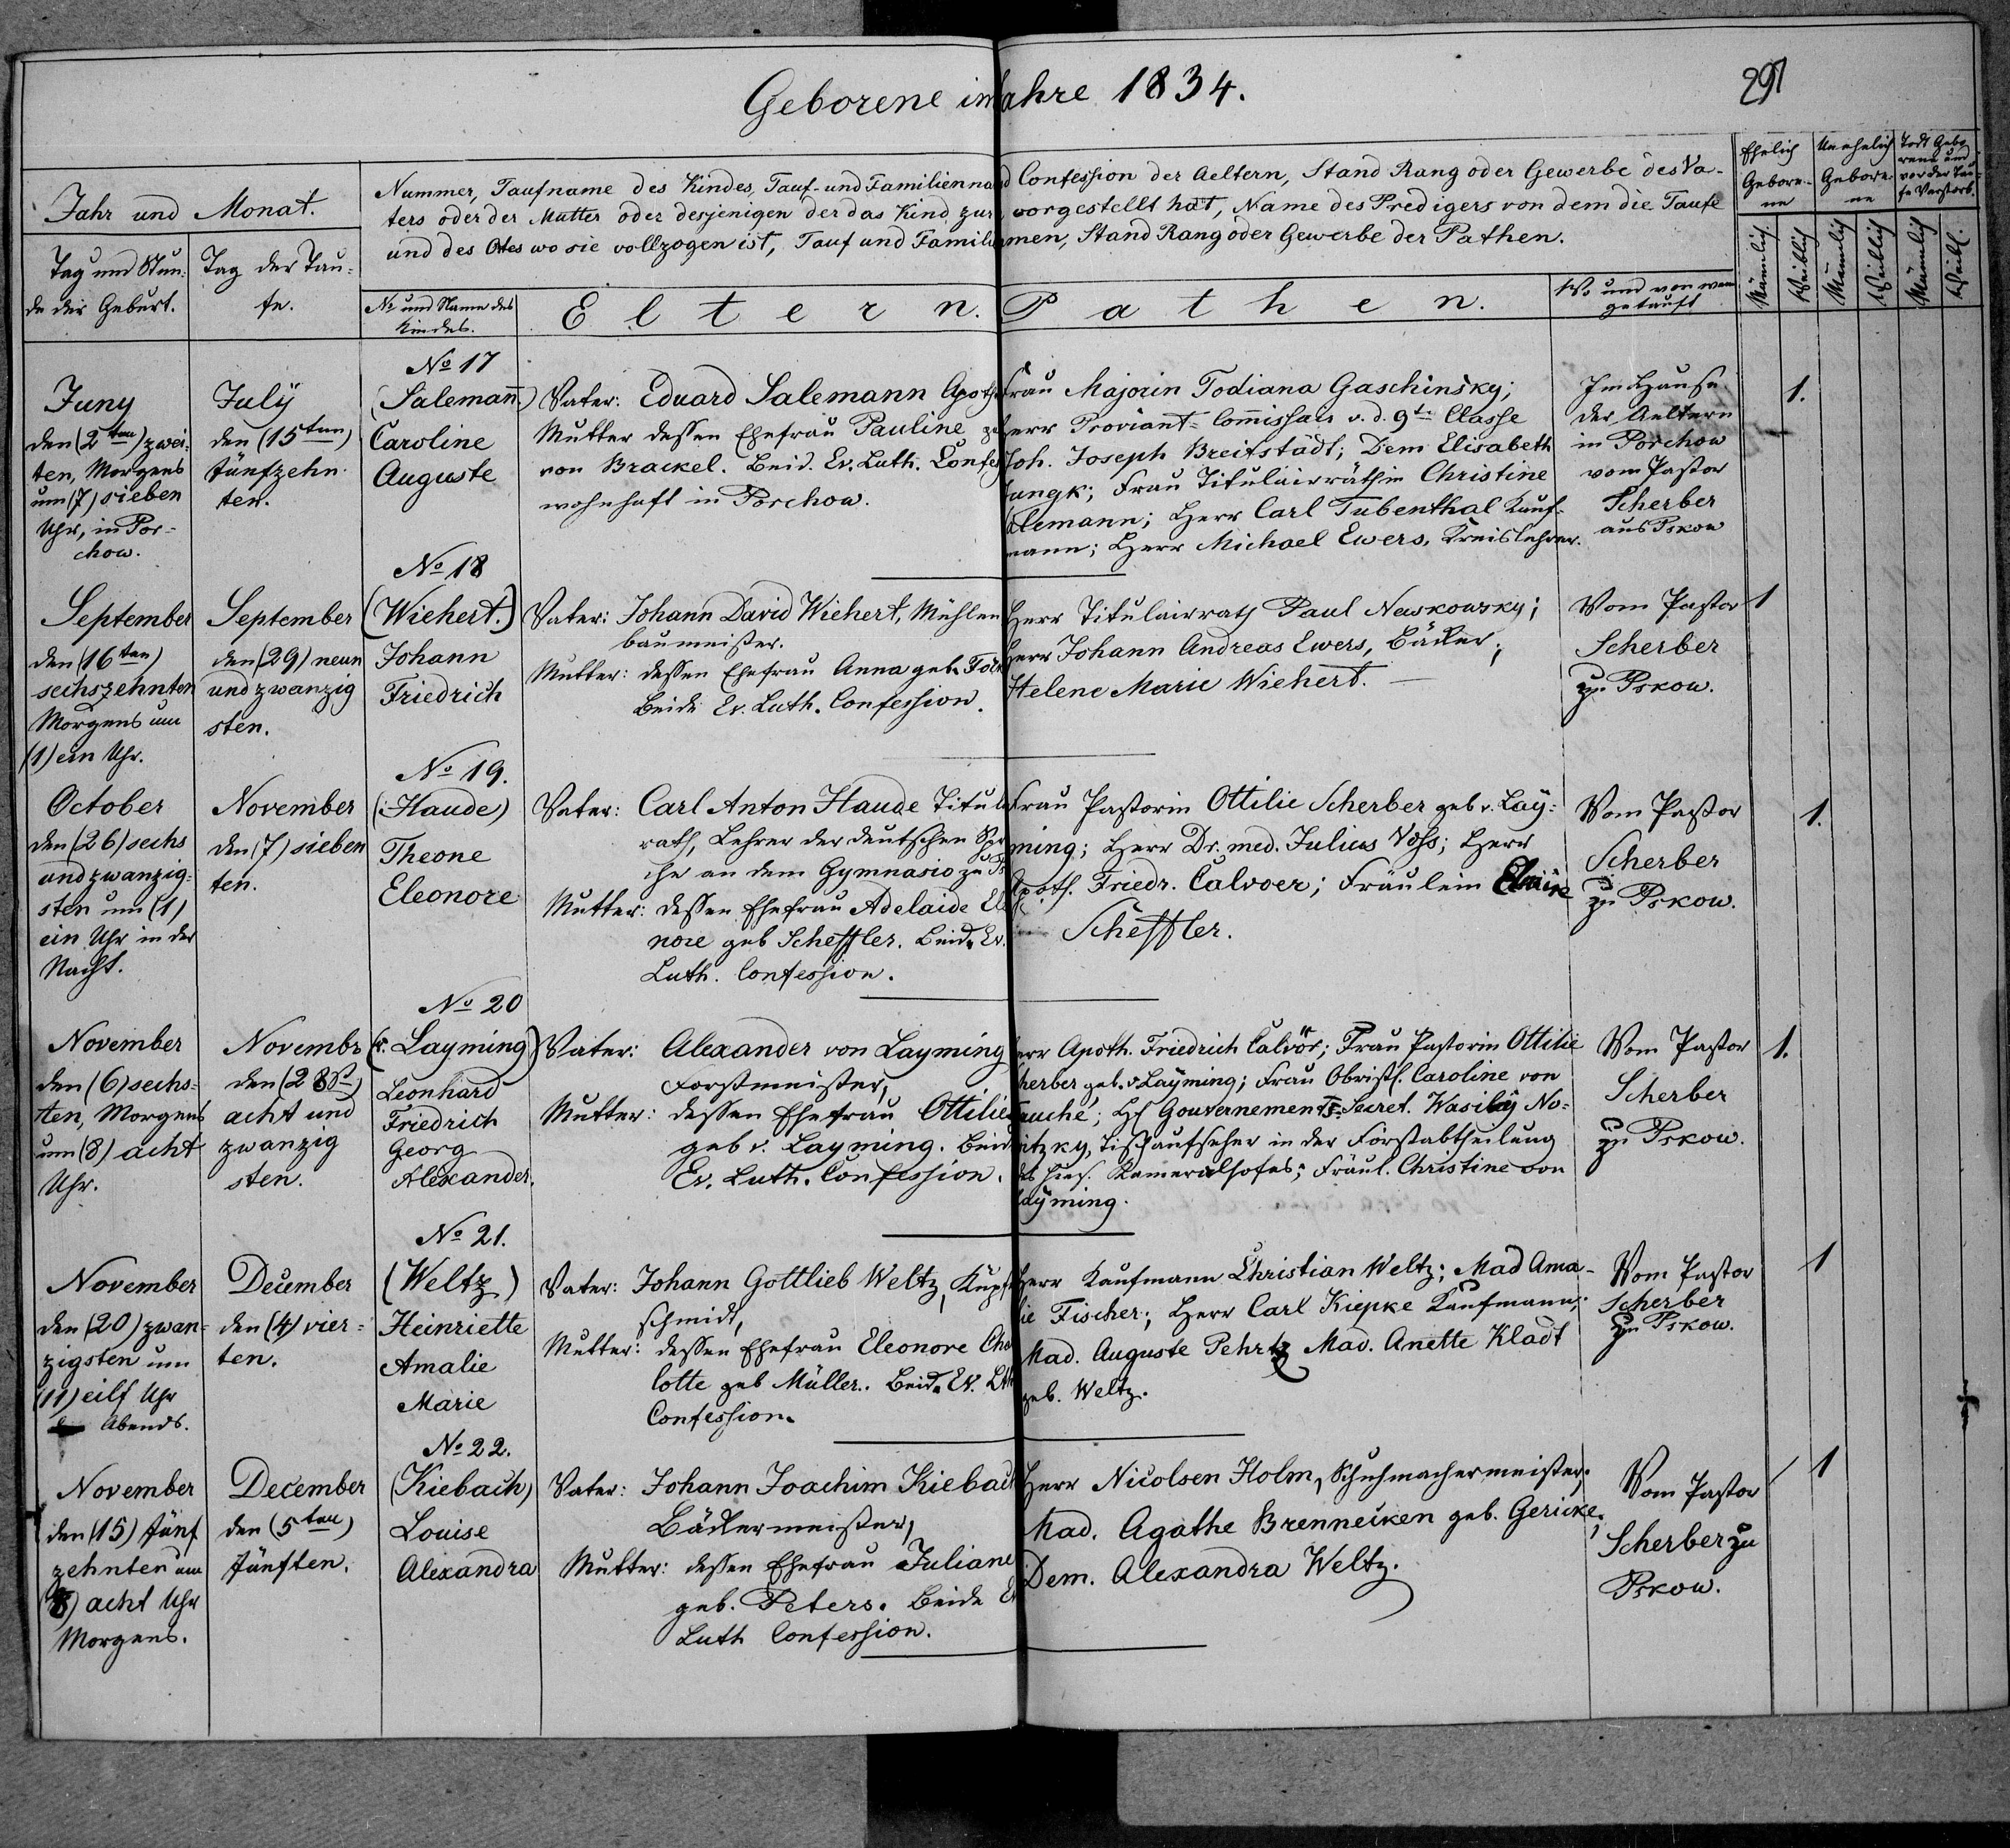 Geborene im Jahre 1834.
291
Jahr und Monat.
Tag und Stun-
de der Geburt.
Tag der Tau-
fe.
Nummer, Taufname des Kindes, Tauf- und Familienna d Confession der Aeltern, Stand Rang oder Gewerbe des Va-
ters oder der Mutter oder desjenigen der das Kind zur vorgestellt hat, Name des Predigers von dem die Taufe
und des Ortes wo sie vollzogen ist, Tauf und Famili men, Stand Rang oder Gewerbe der Pathen.
No und Name des
Kindes.
Eltern.
Pathen.
Wo und von wem
getauft
Ehelich
Gebore-
ne
Unehelich
Gebore-
ne
Todt Gebo
rene und
vor der Tau-
fe Verstorb.
Männlich
Weiblich
Männlich
Weiblich
Männlich
Weibl.
Juny
den (2ten) zwei-
ten, Morgens
um (7) sieben
Uhr, in Por-
chow.
July
den (15ten)
fünfzehn-
ten.
No 17
(Salemann)
Caroline
Auguste
Vater: Eduard Salemann Apoth
Mutter dessen Ehefrau Pauline
von Brackel. Beid. Ev. Luth. Confes
wohnhaft in Porchow.
Frau Majorin Todiana Gaschinsky;
Herr Proviant-Commissair v. d. 9te Classe
Joh. Joseph Breitstädt; Dem Elisabeth
Jungk; Frau Titulairräthin Christine
Salemann; Herr Carl Tubenthal Kauf-
mann; Herr Michael Ewers, Kreislehrer.
Im Hause
der Aeltern
in Porchow
vom Pastor
Scherber
aus Pskow
1.
September
den (16ten)
sechszehnten
Morgens um
(1) ein Uhr.
September
den (29) neun
und zwanzig
sten.
No 18
(Wiehert.)
Johann
Friedrich
Vater: Johann David Wiehert, Mühlen
baumeister.
Mutter: dessen Ehefrau Anna geb.
Beide Ev. Luth. Confession.
Herr Titulairrath Paul Naskowsky;
Herr Johann Andreas Ewers, Bäcker;
Helene Marie Wiehert.
Vom Pastor
Scherber
zu Pskow.
1
October
den (26) sechs
und zwanzig-
sten um (1)
ein Uhr in der
Nacht.
November
den (7) sieben
ten.
No 19.
(Haude)
Theone
Eleonore
Vater: Carl Anton Haude Titul
rath, Lehrer der deutschen Spr
che an dem Gymnasio zu Ps
Mutter: dessen Ehefrau Adelaide Ele
nore geb Scheffler. Beide Ev.
Luth. Confession.
Frau Pastorin Ottilie Scherber geb v. Lay-
ming; Herr Dr. med. Julius Voss; Herr
Apoth. Friedr. Calvoer; Fräulein
Scheffler.
Vom Pastor
Scherber
zu Pskow.
1.
November
den (6) sechs-
ten, Morgens
um (8) acht
Uhr.
Novembr
den (28st)
acht und
zwanzig
sten.
No 20
(v. Layming)
Leonhard
Friedrich
Georg
Alexander.
Vater: Alexander von Layming
Forstmeister,
Mutter: dessen Ehefrau Ottilie
geb v. Layming. Beid
Ev. Luth. Confession.
err Apoth. Friedrich Calvör; Frau Pastorin Ottilie
herber geb. v Layming; Frau Obristl. Caroline von
auché; Hr Gouvernements-Secret. Wasily No-
itzky, Tischaufseher in der Forstabtheilung
des hies. Kameralhofes; Fräul. Christine von
Layming.
Vom Pastor
Scherber
zu Pskow.
1.
November
den (20) zwan-
zigsten um
(11) eilf Uhr
Abends.
December
den (4) vier-
ten.
No 21.
(Weltz)
Heinriette
Amalie
Marie
Vater: Johann Gottlieb Weltz, Kupf
schmidt,
Mutter: dessen Ehefrau Eleonore Cha
lotte geb Müller. Beide Ev. Lth
Confession.
Herr Kaufmann Christian Weltz; Mad Ama-
lie Fischer; Herr Carl Kiepke Kaufmann;
Mad. Auguste Pehrtz Mad. Anette Kladt
geb. Weltz.
Vom Pastor
Scherber
zu Pskow.
1
November
den (15) fünf
zehnten um
(8) acht Uhr
Morgens.
December
den (5ten)
fünften.
No 22.
(Kiebach)
Louise
Alexandra
Vater: Johann Joachim Kiebach
Bäckermeister,
Mutter: dessen Ehefrau Juliane
geb. Peters. Beide Ev
Luth Confession.
Herr Nicolsen Holm, Schuhmachermeister;
Mad. Agathe Brenneiken geb. Gericke;
Dem. Alexandra Weltz.
Vom Pastor
Scherber zu
Pskow.
1